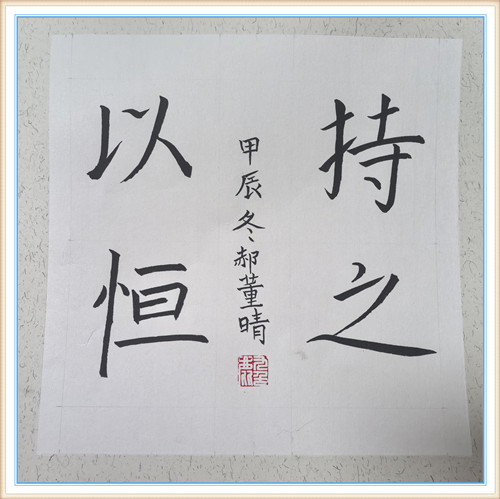 持之
以恒
甲辰冬郝董晴